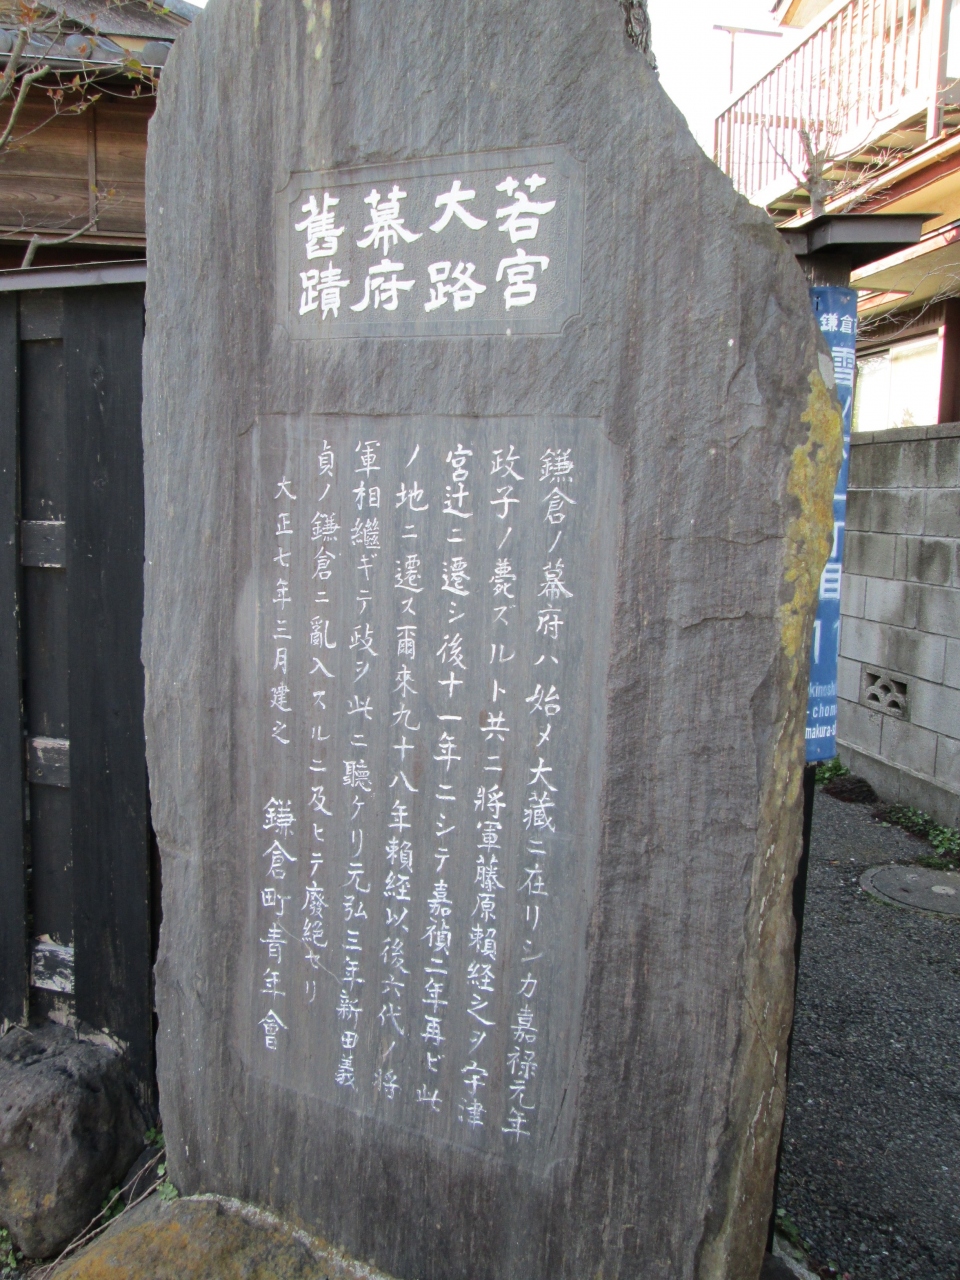 若宮
大路
幕府
舊蹟
鎌倉ノ幕府ハ始メ大藏ニ在リシカ嘉禄元年
政子ノ薨ズルト共ニ將軍藤原賴経之ヲ宇津
宮辻ニ遷シ後十一年ニシテ嘉禎二年再ビ此
ノ地ニ遷ス爾來九十八年賴経以後六代ノ将
軍相繼ギテ政ヲ此ニ聽ケリ元弘三年新田義
貞ノ鎌倉ニ亂入スルニ及ヒテ廢絶セリ
大正七年三月建之 鎌倉町青年會
鎌倉
雪ノ
丁目
1
kinosh
-chom
makura-s